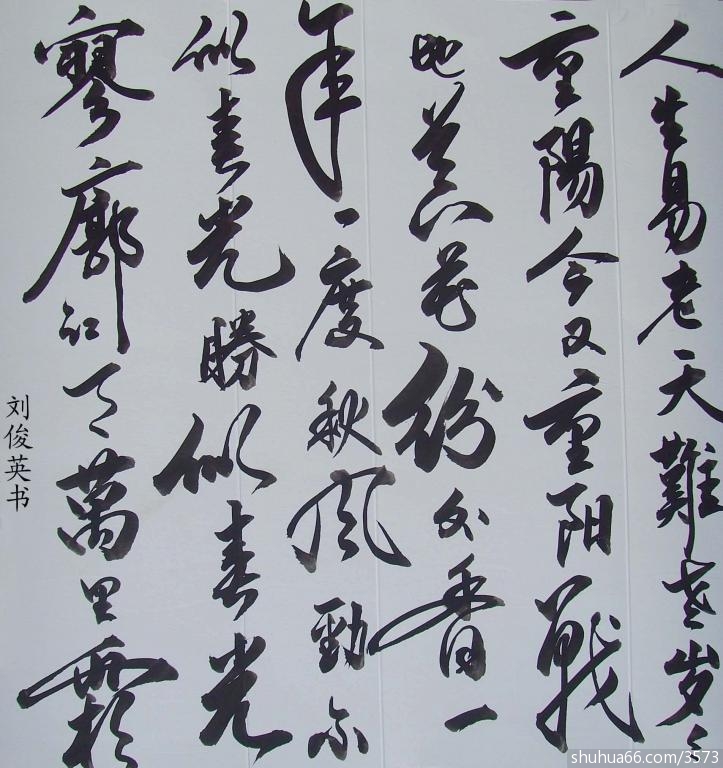 人生易老天難老岁々
重陽今又重阳戰
地黄花纷外香一
年一度秋风勁不
似春光勝似春光
寥廓江天萬里霜
刘俊英书
shuhua66.com/3573